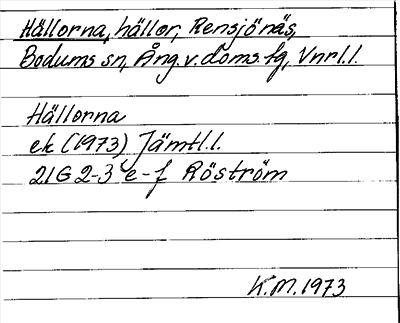 Hällorna, hällor, Rensjönäs,
Bodums sn, Ång. v. doms. fg, Vnrl. l.
Hällorna
ek (1973) Jämtl. l.
21G 2-3 e-f Röström
K.M. 1973